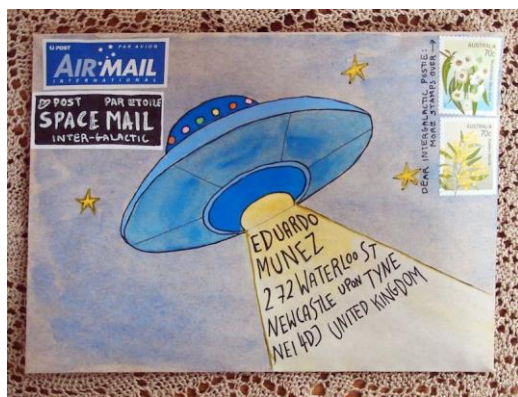 POST PAR AVION
AIR MAIL
INTERNATIONAL
POST PAR ETOILE
SPACE MAIL
INTER-GALACTIC
DEAR INTERGALACTIC POSTIE:
MORE STAMPS OVER →
AUSTRALIA
70c
AUSTRALIA
70c
EDUARDO
MUNEZ
272 WATERLOO ST
NEWCASTLE UPON TYNE
NE1 4DJ UNITED KINGDOM